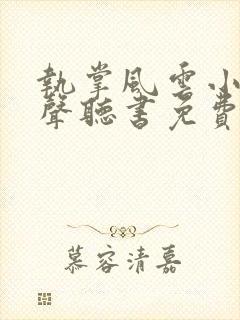 執掌風雲小
聲聽書免費
慕容清嘉